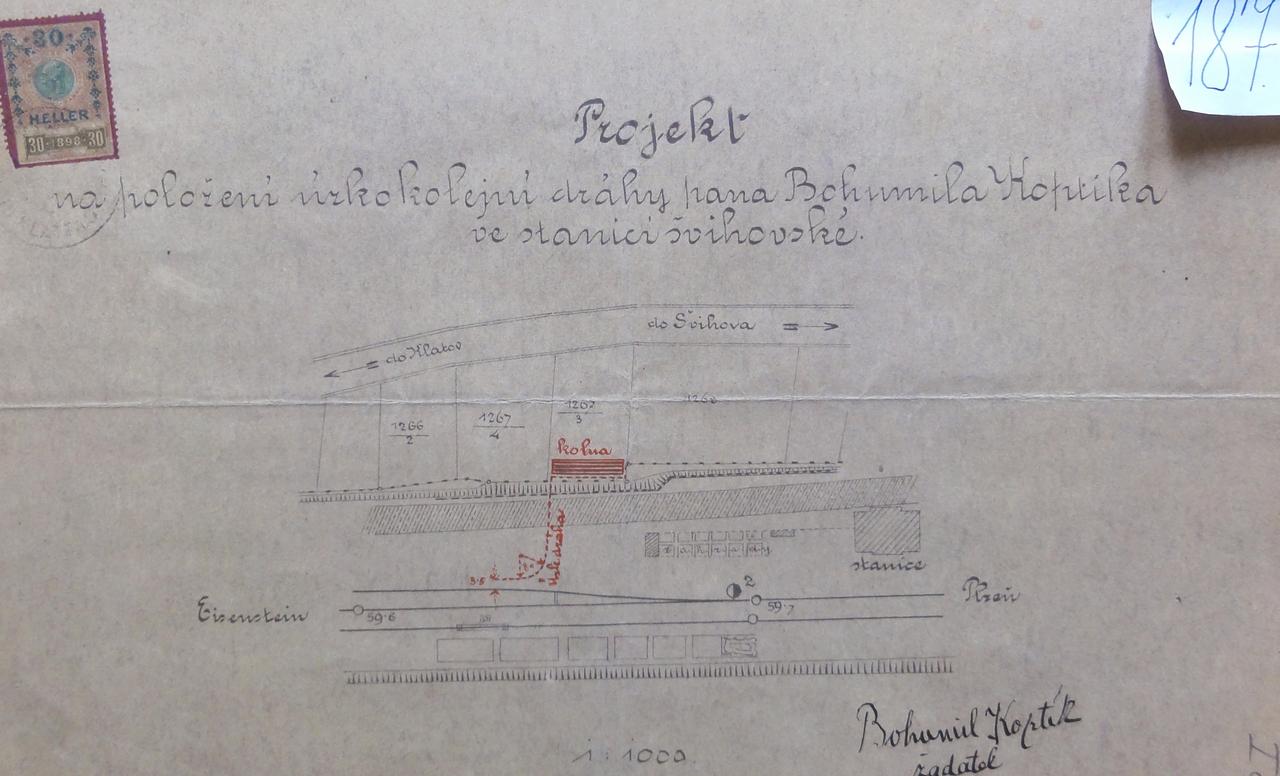 30
HELLER
30·1898·30
187
Projekt
na položení úzkokolejní dráhy pana Bohumila Koptíka
ve stanici švihovské.
do Klatov
do Švihova
1266/2
1267/4
1267/3
kolna
zahrady
stanice
3.5
2
Eisenstein
59·6
59·7
Plzeň
1:1000
Bohumil Koptík
žadatel